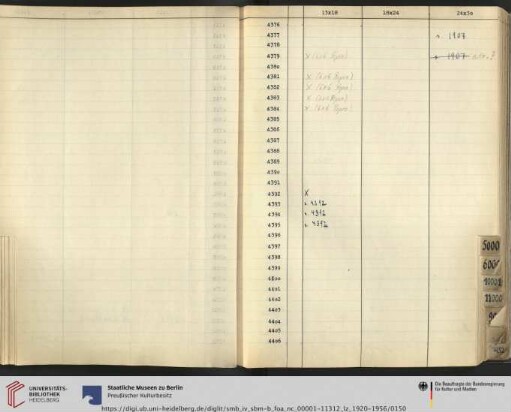 13x18 18x24 24x30
4376
4377 1907
4378
4379 x (6x6 Repro) x 1907
4380
4381 x (6x6 Repro)
4382 x (6x6 Repro)
4383 x (6x6 Repro)
4384 x (6x6 Repro)
4385
4386
4387
4388
4389
4390
4391
4392 x
4393
4394
4395
4396
4397
4398
4399
4400
4401
4402
4403
4404
4405
4406
5000
6000
10001
11000
UNIVERSITÄTS-
BIBLIOTHEK
HEIDELBERG
Staatliche Museen zu Berlin
Preußischer Kulturbesitz
Die Beauftragte der Bundesregierung
für Kultur und Medien
https://digi.ub.uni-heidelberg.de/diglit/smb_iv_sbm-b_foa_nc_00001-11312_lz_1920-1956/0150